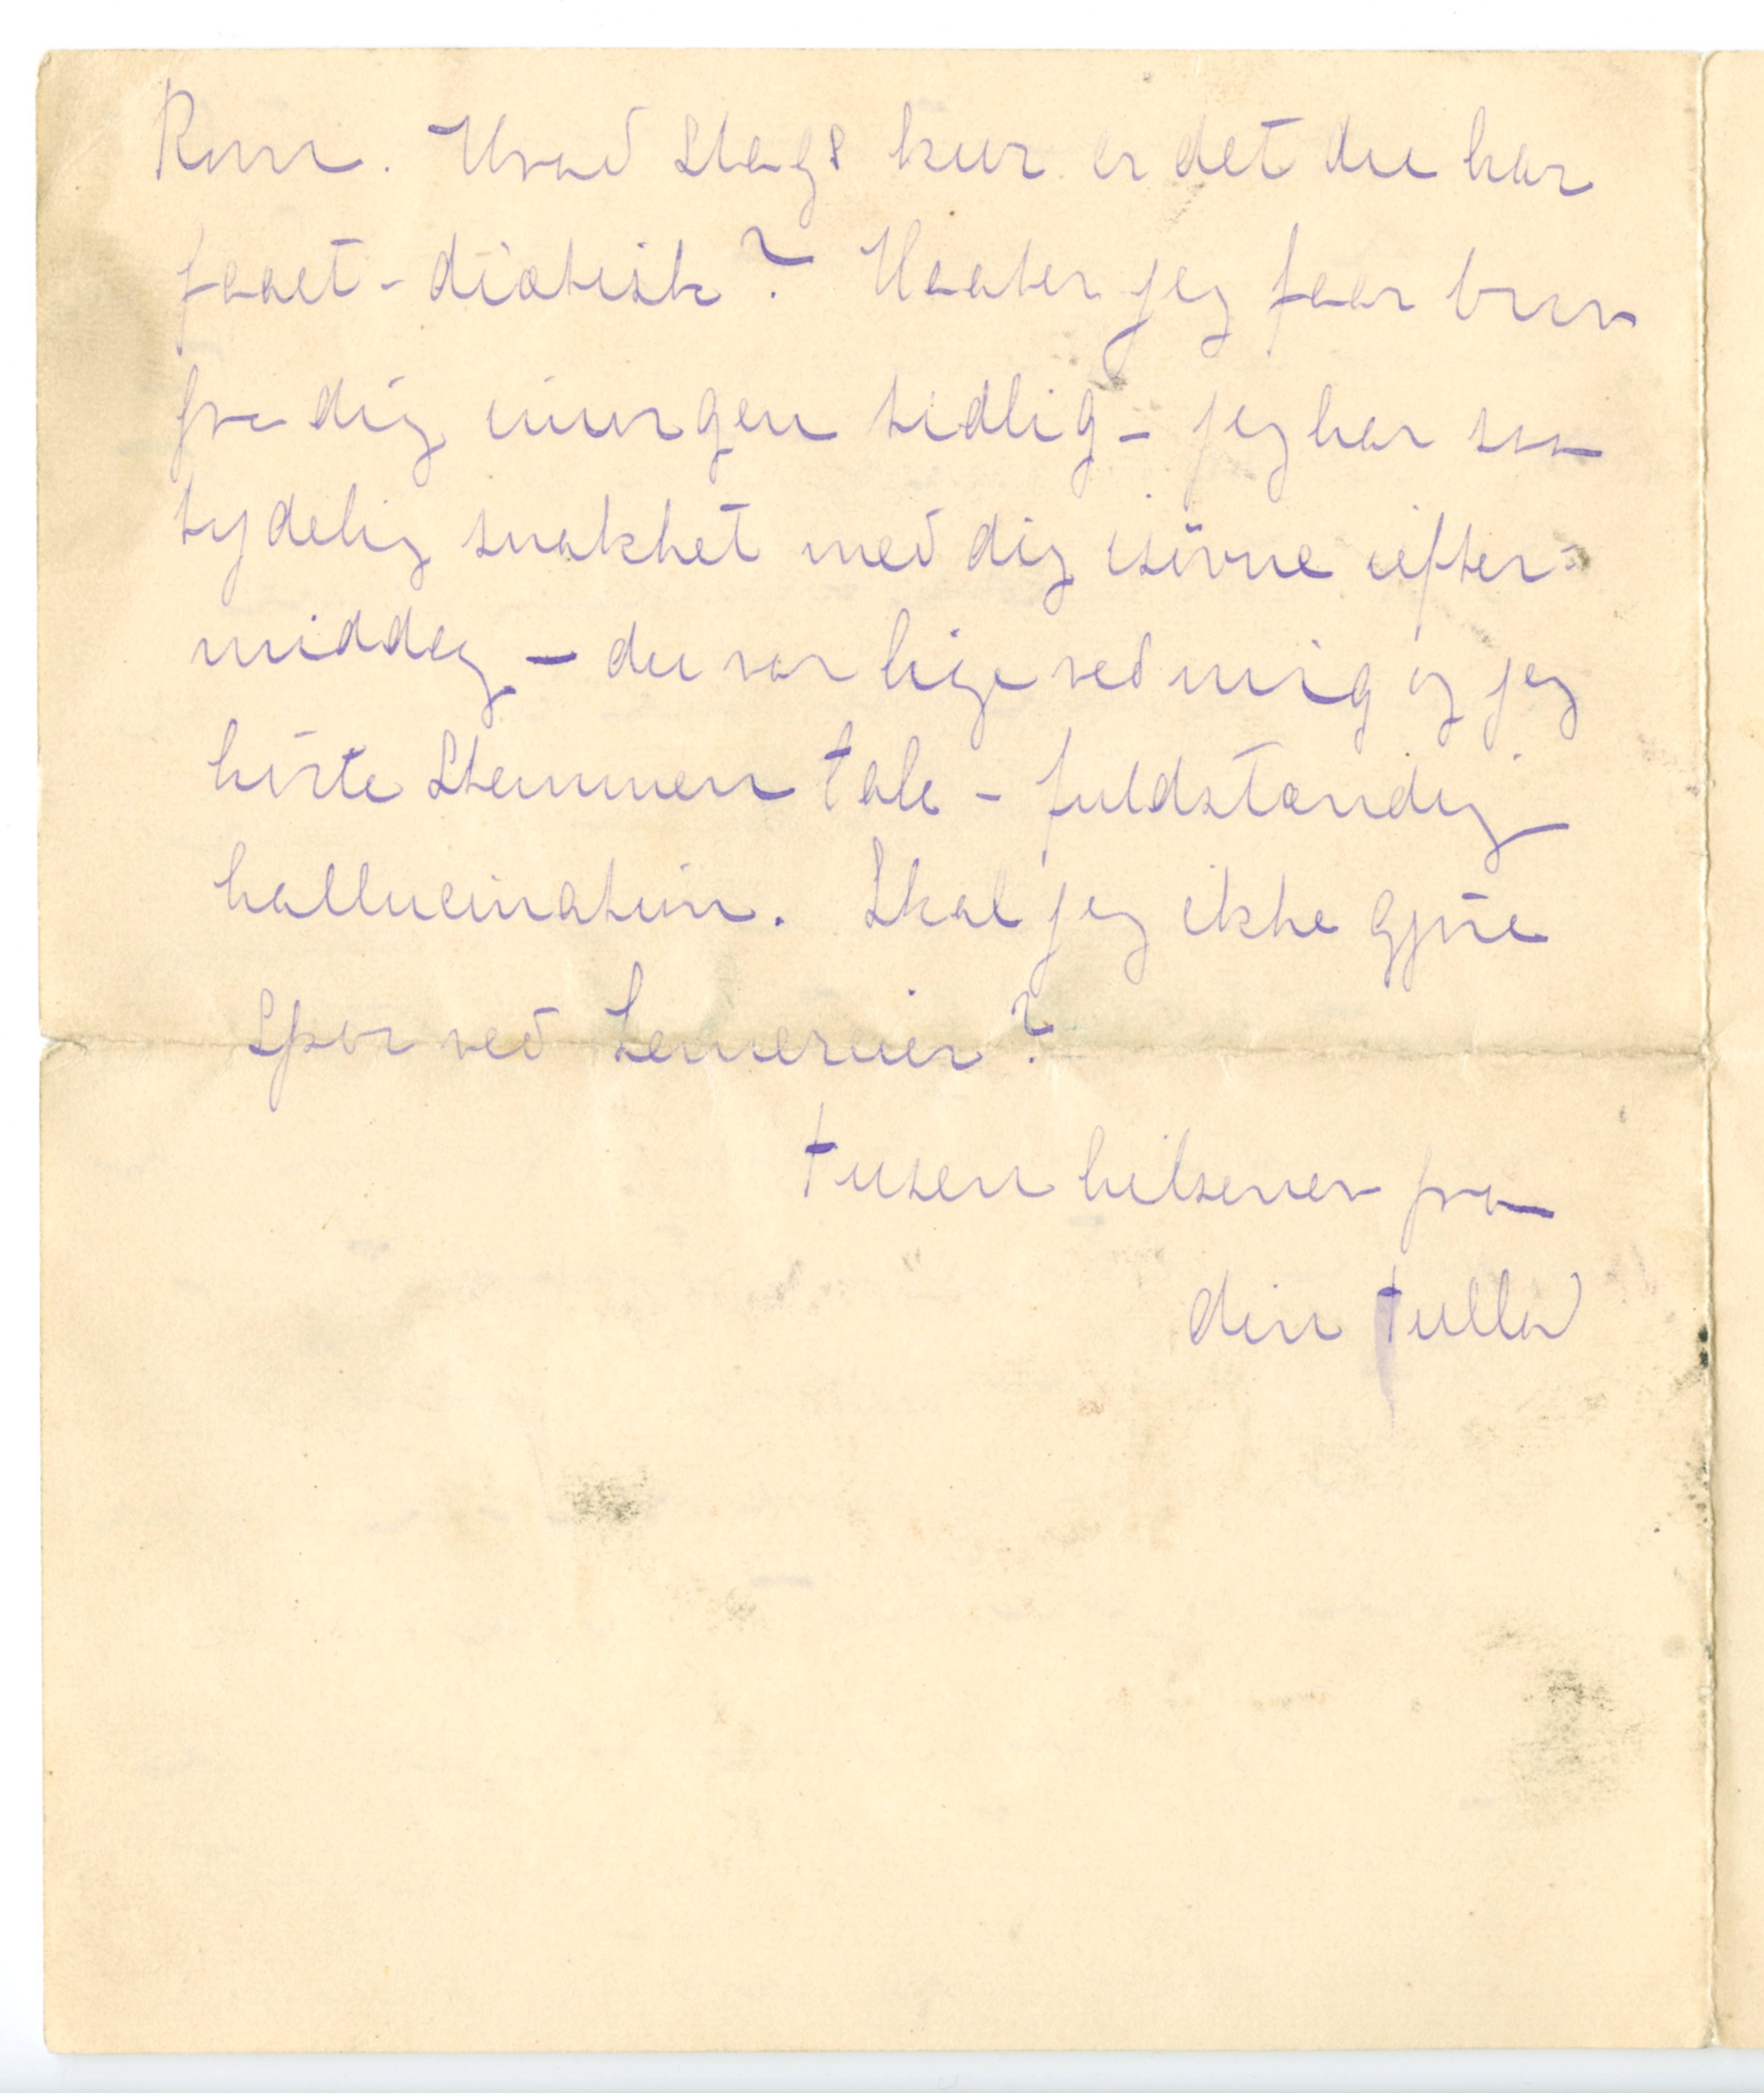 Rom. Hvad slags kur er det du har
faaet - diætisk? Haaber jeg faar brev
fra dig imorgen tidlig - jeg har saa
tydelig snakket med dig isövne iefter-
middag - du var lige ved mig og jeg
hörte stemmen tale - fuldstændig
hallucination. Skal jeg ikke gjöre
spor ved
tusen hilsener fra
din tulla